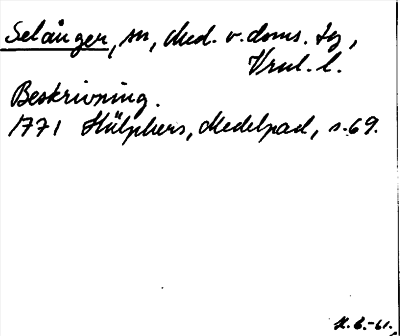 Selånger, sn, Med. v. doms. tg,
Vrnl. l.
Beskrivning.
1771 Hülphers, Medelpad, s. 69.
H. B.-61.